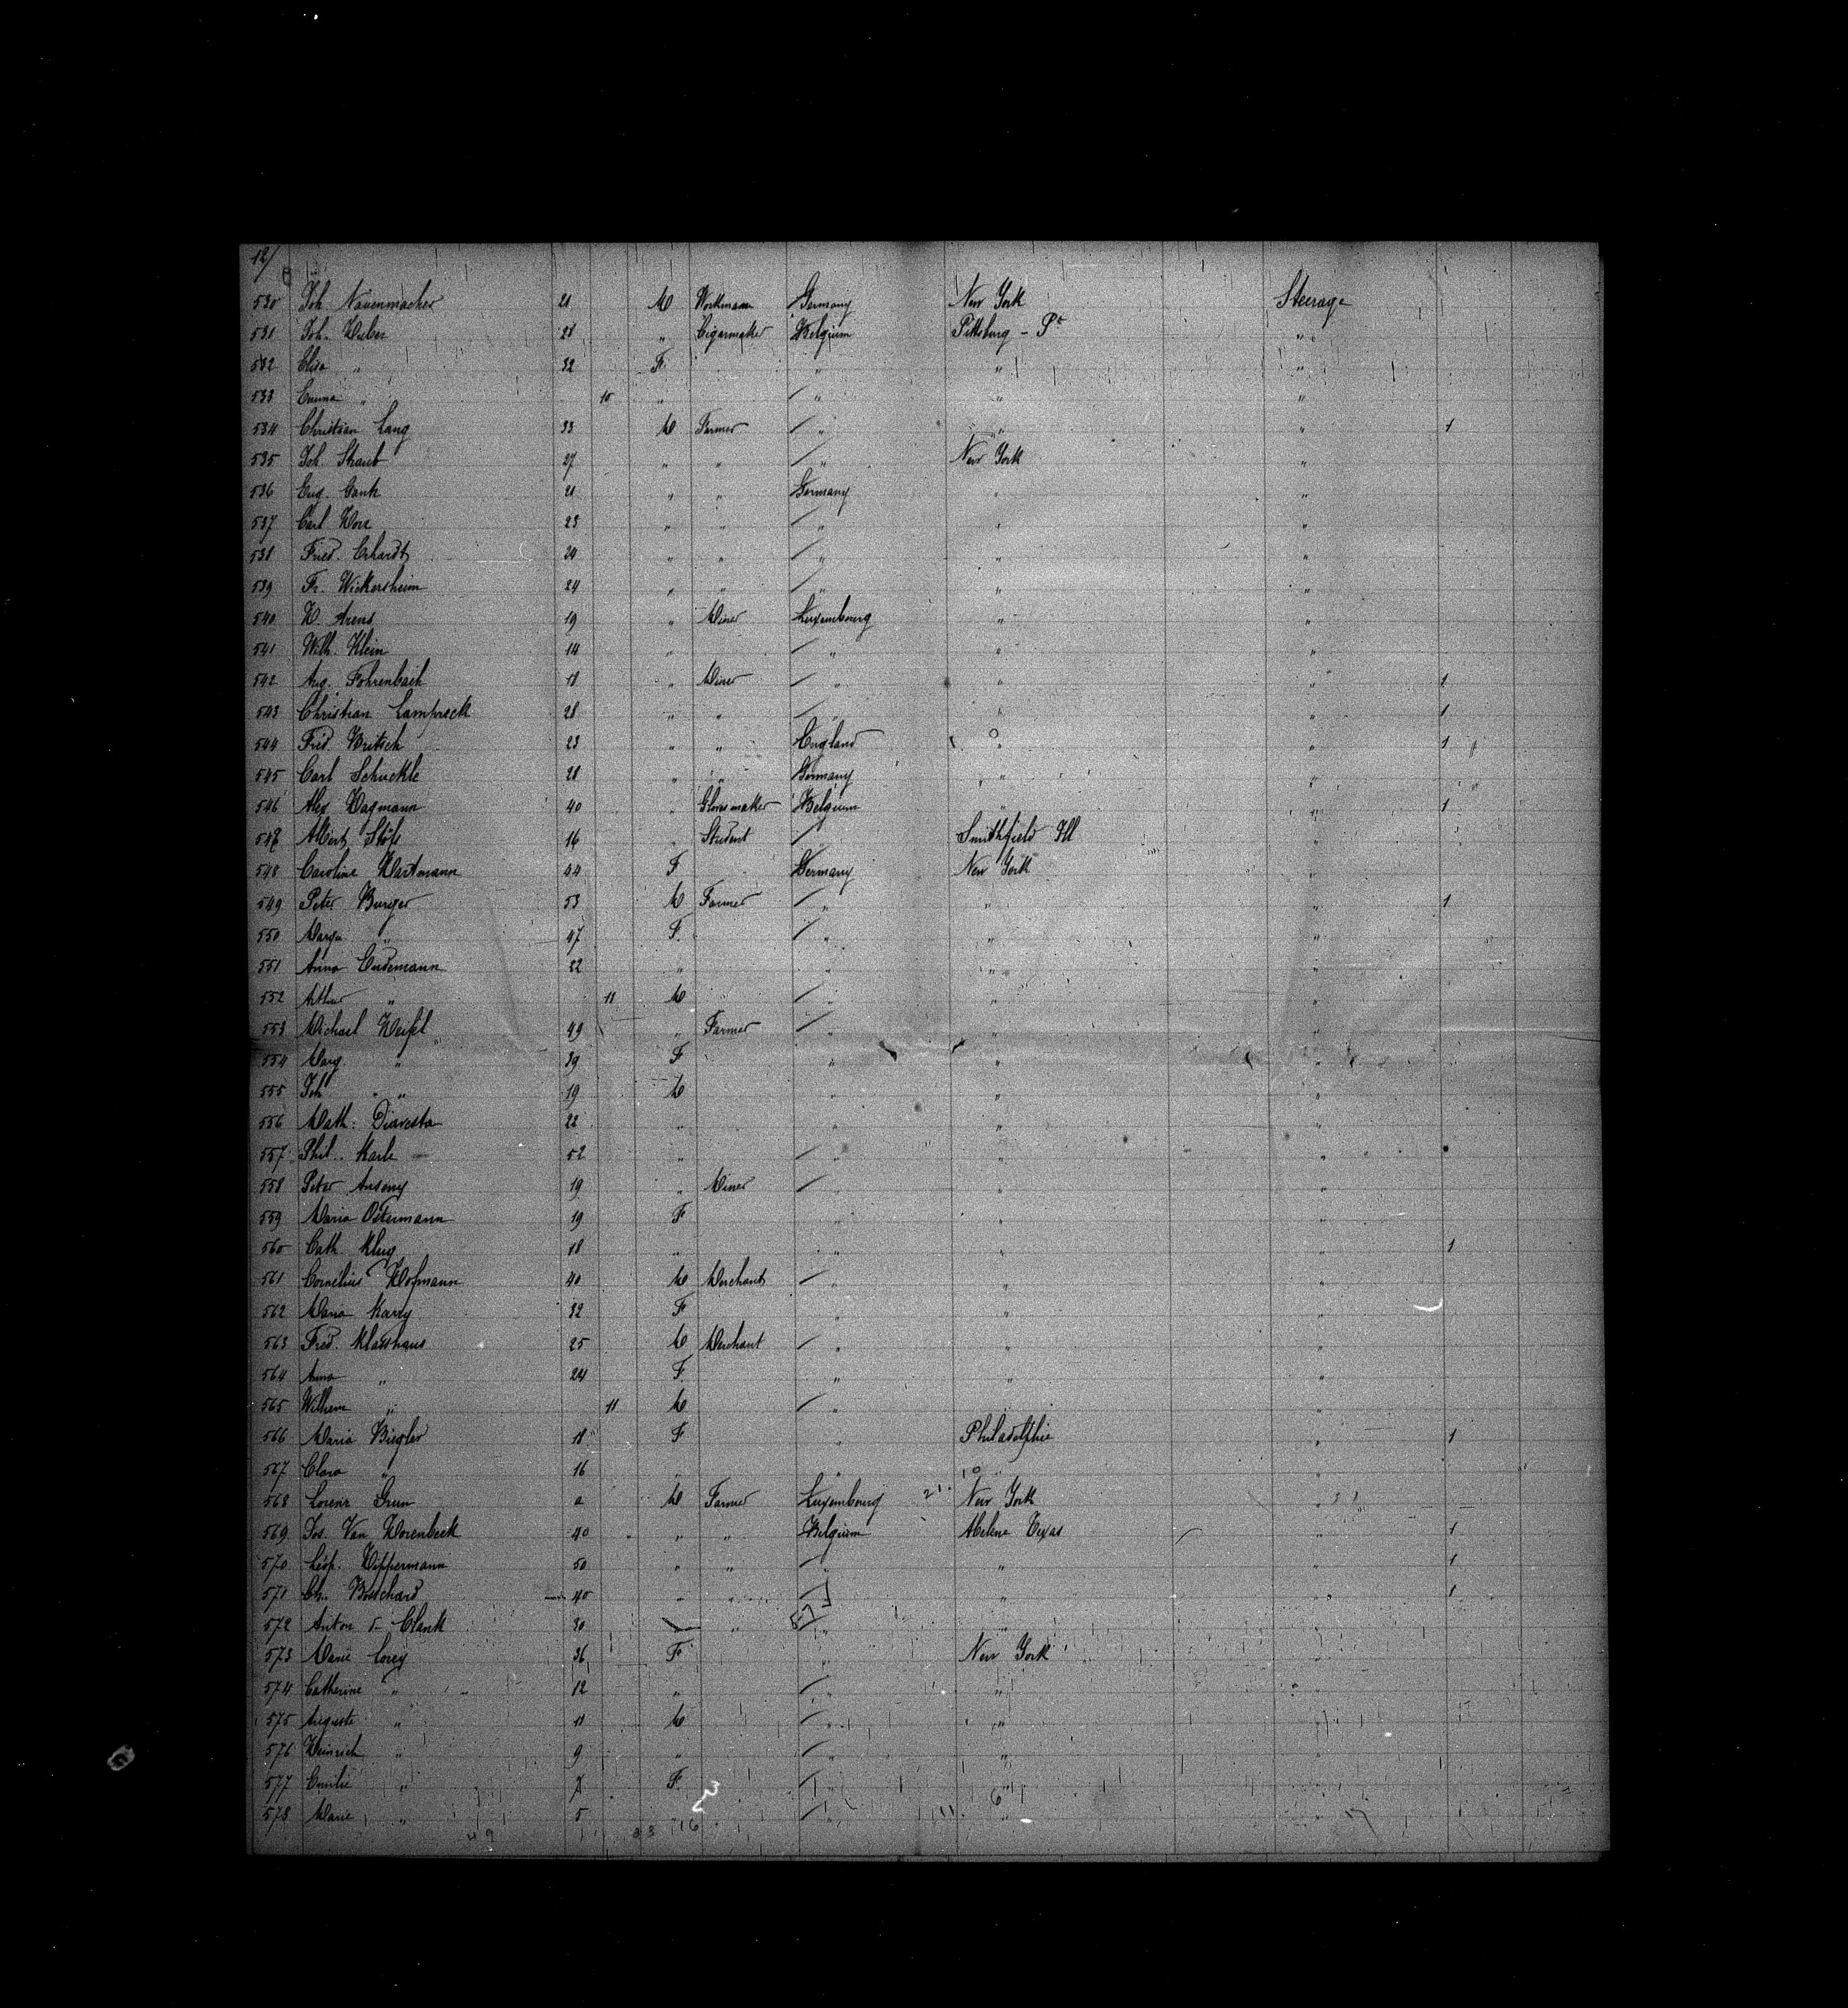 12/
530 Joh Nauenmacher 21 M Workmann Germany New York Steerage
531 Joh. Huber 28 " Cigarmaker Belgium Pittsburg - Pa "
532 Elise " 32 F " " "
533 Emma " 10 " " " "
534 Christian Lang 33 M Farmer " " " 1
535 Joh. Straub 27 " " " New York "
536 Eug. Gank 21 " " Germany " "
537 Carl 23 " " " " "
538 Fried. Erhardt 24 " " " " "
539 Fr. Wickersheim 24 " " " "
540 H. Arens 19 " Miner Luxembourg " "
541 Wilh. Klein 14 " " " "
542 Aug. Fohrenbach 18 " Miner " " " 1
543 Christian Lampreck 28 " " " " " 1
544 Fried. Britsch 23 " " England " " 1
545 Carl Schuckle 28 " " Germany " "
546 Alex Hagmann 40 " Belgium " " 1
547 Albert 16 " Student Smithfield Ill "
548 Caroline Hartmann 44 F Germany New York "
549 Peter Burger 53 M Farmer " " " 1
550 Marga " 47 F. " " "
551 Anna Endemann 22 " " " "
552 Arthur " 11 M " " "
553 Michael Weisel 49 " Farmer " " "
554 Marg " 39 F " " "
555 Joh " 19 M " " "
556 Math: 22 " " " "
557 Phil. Karle 52 " " " "
558 Peter Antony 19 " Miner " " "
559 Maria Ostermann 19 F " " "
560 Cath Klug 18 " " " " 1
561 Cornélius Hofmann 40 M Merchant " " "
562 Maria Karry 32 F " " "
563 Fred. Klasshaus 25 M Merchant " " "
564 Anna " 24 F. " " "
565 Wilhem " 11 M " " "
566 Maria Biegler 18 F " Philadelphie " 1
567 Clara " 16 " " " "
568 Lorenz Grun M Farmer Luxembourg 21 New York "
569 Jos. Van Horenbeck 40 " " Belgium Abelene Texas " 1
570 Léop. Hippermann 50 " " " " " 1
571 Ch. Bosschard 40 " " " " 1
572 Anton Clank 30 " "
573 Marie Lorey 36 F " New York "
574 Catherine " 12 " " " "
575 Auguste " 11 M " " "
576 Heinrich " 9 " " " "
577 Emilie " 7 F. " "
578 Marie " 5 " " "